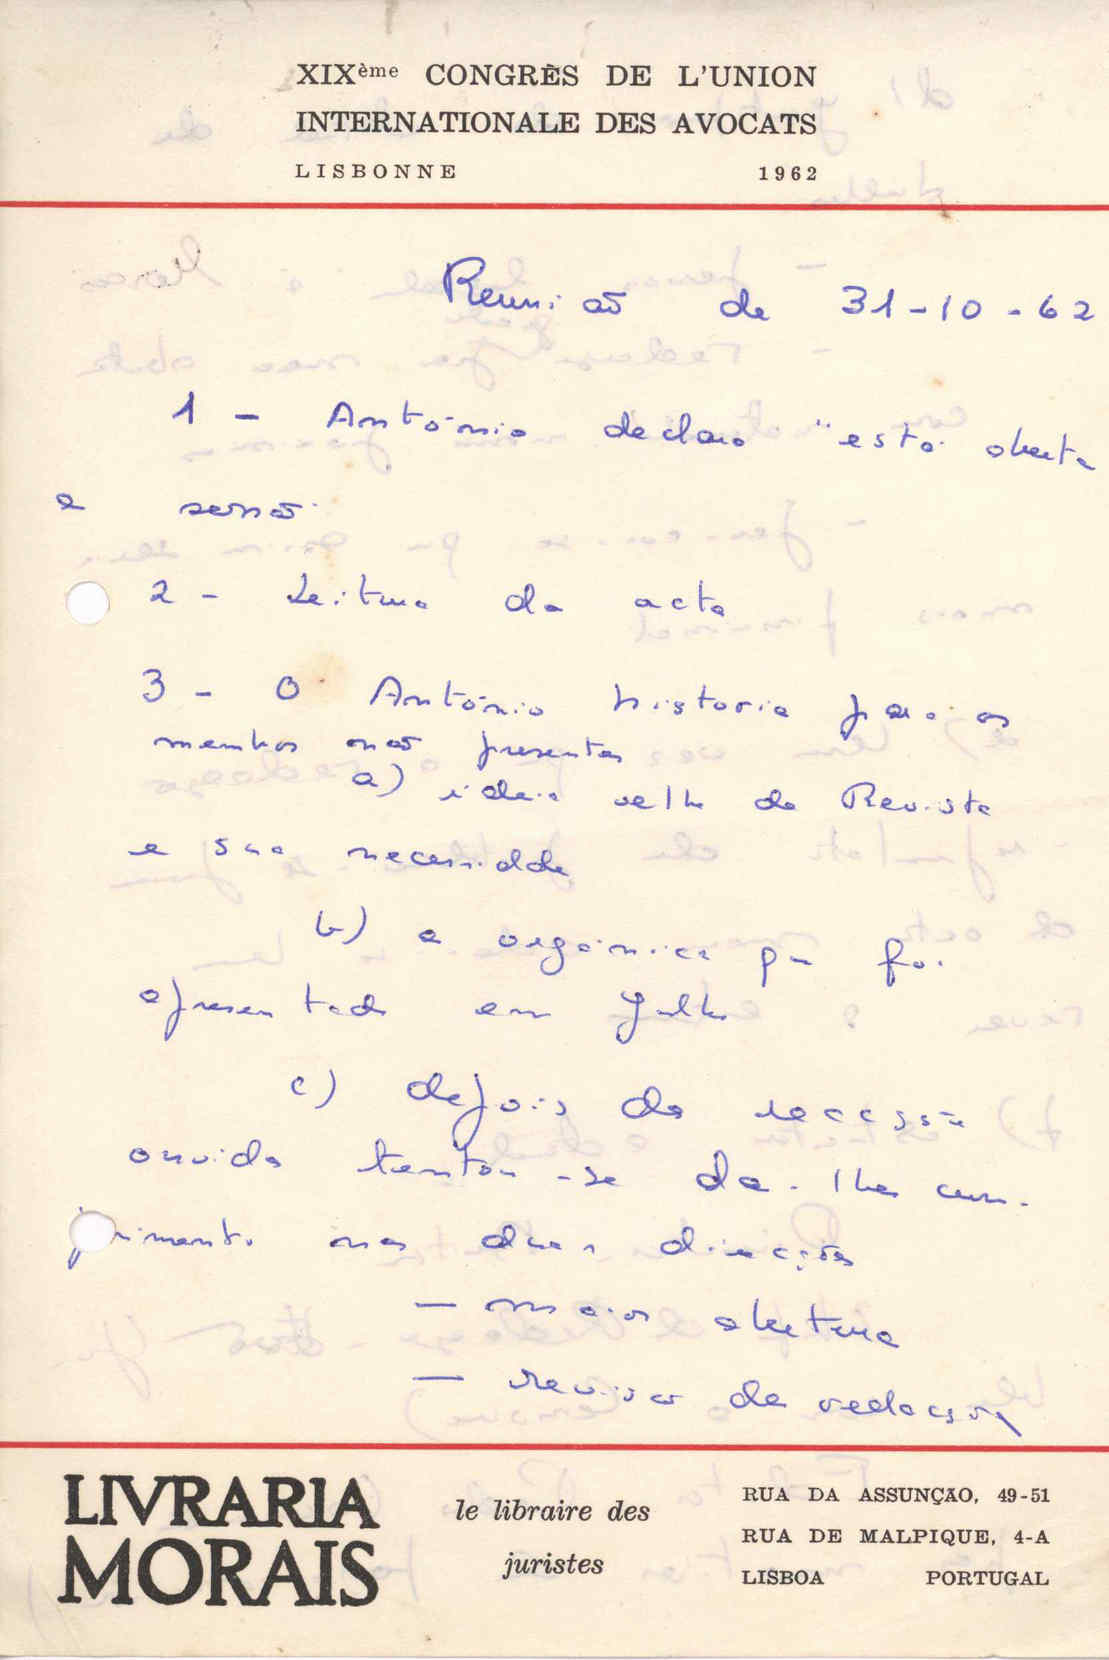 XIXème CONGRÈS DE L'UNION
INTERNATIONALE DES AVOCATS
LISBONNE 1962
Reunião de 31-10-62
1 - António declara "está aberta
a sessão"
2 - Leitura da acta
3 - O António historia para os
membros não presentes
a) ideia velha da Revista
e sua necessidade
b) a orgânica que foi
apresentada em Julho
c) depois da recessão
ouvida tentou-se dar-lhe cum-
primento nas duas direcções
- maior abertura
- revisão da redacção
LIVRARIA
MORAIS
le libraire des
juristes
RUA DA ASSUNÇÃO, 49-51
RUA DE MALPIQUE, 4-A
LISBOA PORTUGAL